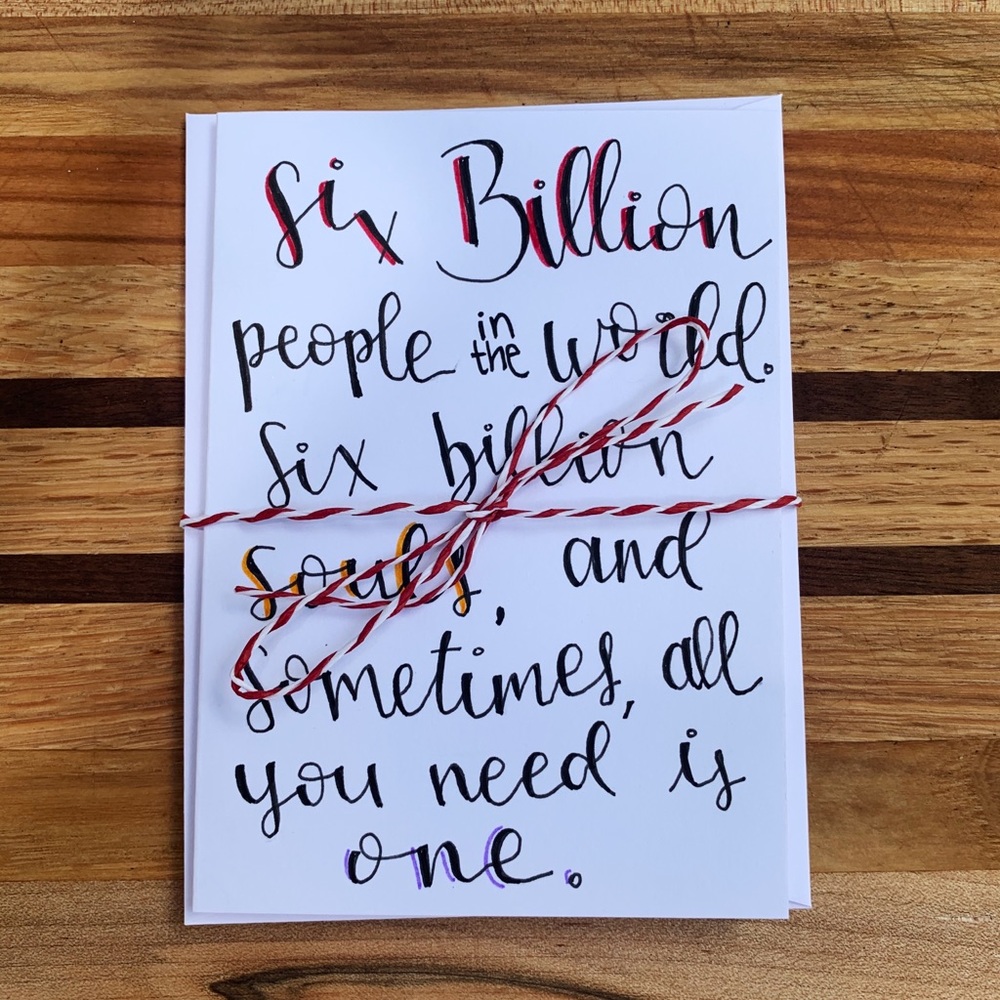 Six Billion
people in the world.
six billion
souls, and
sometimes, all
you need is
one.